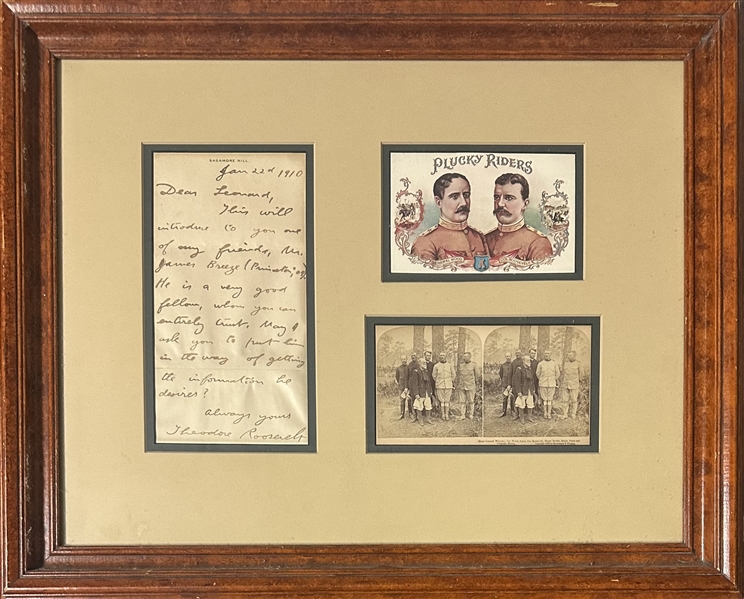 SAGAMORE HILL.
Jan 22d 1910
Dear Leonard,
This will
introduce to you one
of my friends, Mr.
James Breeze (Princeton, '09)
He is a very good
fellow, whom you can
entirely trust. May I
ask you to put him
in the way of getting
the information he
desires?
Always yours
Theodore Roosevelt
PLUCKY RIDERS